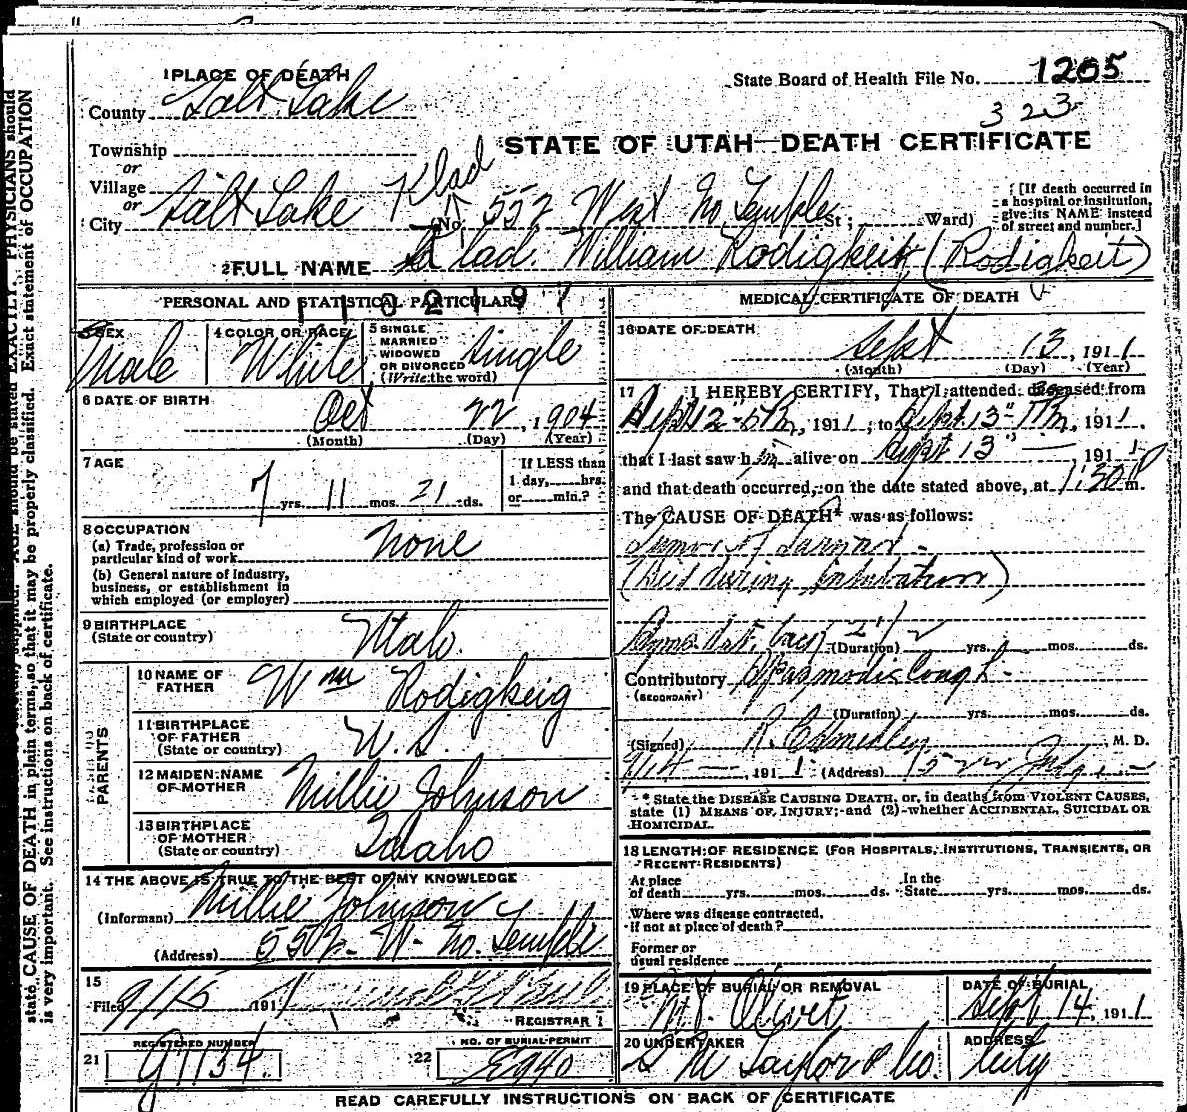 1 PLACE OF DEATH
State Board of Health File No. 1205
County Salt Lake
323
STATE OF UTAH—DEATH CERTIFICATE
Township
or
Village
or
City Salt Lake
Klad
(No. 552 West No. Temple St; Ward)
[If death occurred in a hospital or institution, give its NAME instead of street and number.]
2 FULL NAME Klad. William Rodigkeit, (Rodigkeit)
PERSONAL AND STATISTICAL PARTICULARS
MEDICAL CERTIFICATE OF DEATH
3 SEX Male
4 COLOR OR RACE White
5 SINGLE MARRIED WIDOWED OR DIVORCED (Write the word) Single
6 DATE OF BIRTH
Oct 22, 1904
(Month) (Day) (Year)
7 AGE
7 yrs. 11 mos. 21 ds.
If LESS than 1 day, hrs. or min.?
8 OCCUPATION
(a) Trade, profession or particular kind of work None
(b) General nature of industry, business, or establishment in which employed (or employer)
9 BIRTHPLACE
(State or country) Utah.
PARENTS
10 NAME OF FATHER Wm Rodigkeig
11 BIRTHPLACE OF FATHER (State or country) U. S.
12 MAIDEN NAME OF MOTHER Millie Johnson
13 BIRTHPLACE OF MOTHER (State or country) Idaho
14 THE ABOVE IS TRUE TO THE BEST OF MY KNOWLEDGE
(Informant) Millie Johnson
(Address) 552 W. No. Temple
15
Filed 9/15 1911
REGISTRAR
21 REGISTERED NUMBER
G1134
22 NO. OF BURIAL PERMIT
E940
16 DATE OF DEATH
Sept 13, 1911
(Month) (Day) (Year)
17 I HEREBY CERTIFY, That I attended deceased from
Sept 12" 1911; to Sept 13" 1911,
that I last saw him alive on Sept 13" 1911
and that death occurred, on the date stated above, at 1:30 P m.
The CAUSE OF DEATH* was as follows:
Tumor of Larynx -
(Died during intubation)
(Duration) yrs. mos. ds.
Contributory Spasmodic Cough -
(SECONDARY)
(Duration) yrs. mos. ds.
(Signed) M. D.
9/14 1911 (Address)
* State the DISEASE CAUSING DEATH, or, in deaths from VIOLENT CAUSES, state (1) MEANS OF INJURY; and (2) whether ACCIDENTAL, SUICIDAL OR HOMICIDAL.
18 LENGTH OF RESIDENCE (FOR HOSPITALS, INSTITUTIONS, TRANSIENTS, OR RECENT RESIDENTS)
At place of death yrs. mos. ds. In the State yrs. mos. ds.
Where was disease contracted, if not at place of death?
Former or usual residence
19 PLACE OF BURIAL OR REMOVAL
Mt. Olivet
DATE OF BURIAL
Sept 14, 1911
20 UNDERTAKER
S M Taylor & Co.
ADDRESS
City
READ CAREFULLY INSTRUCTIONS ON BACK OF CERTIFICATE
PHYSICIANS should
state CAUSE OF DEATH in plain terms, so that it may be properly classified. Exact statement of OCCUPATION
is very important. See instructions on back of certificate.